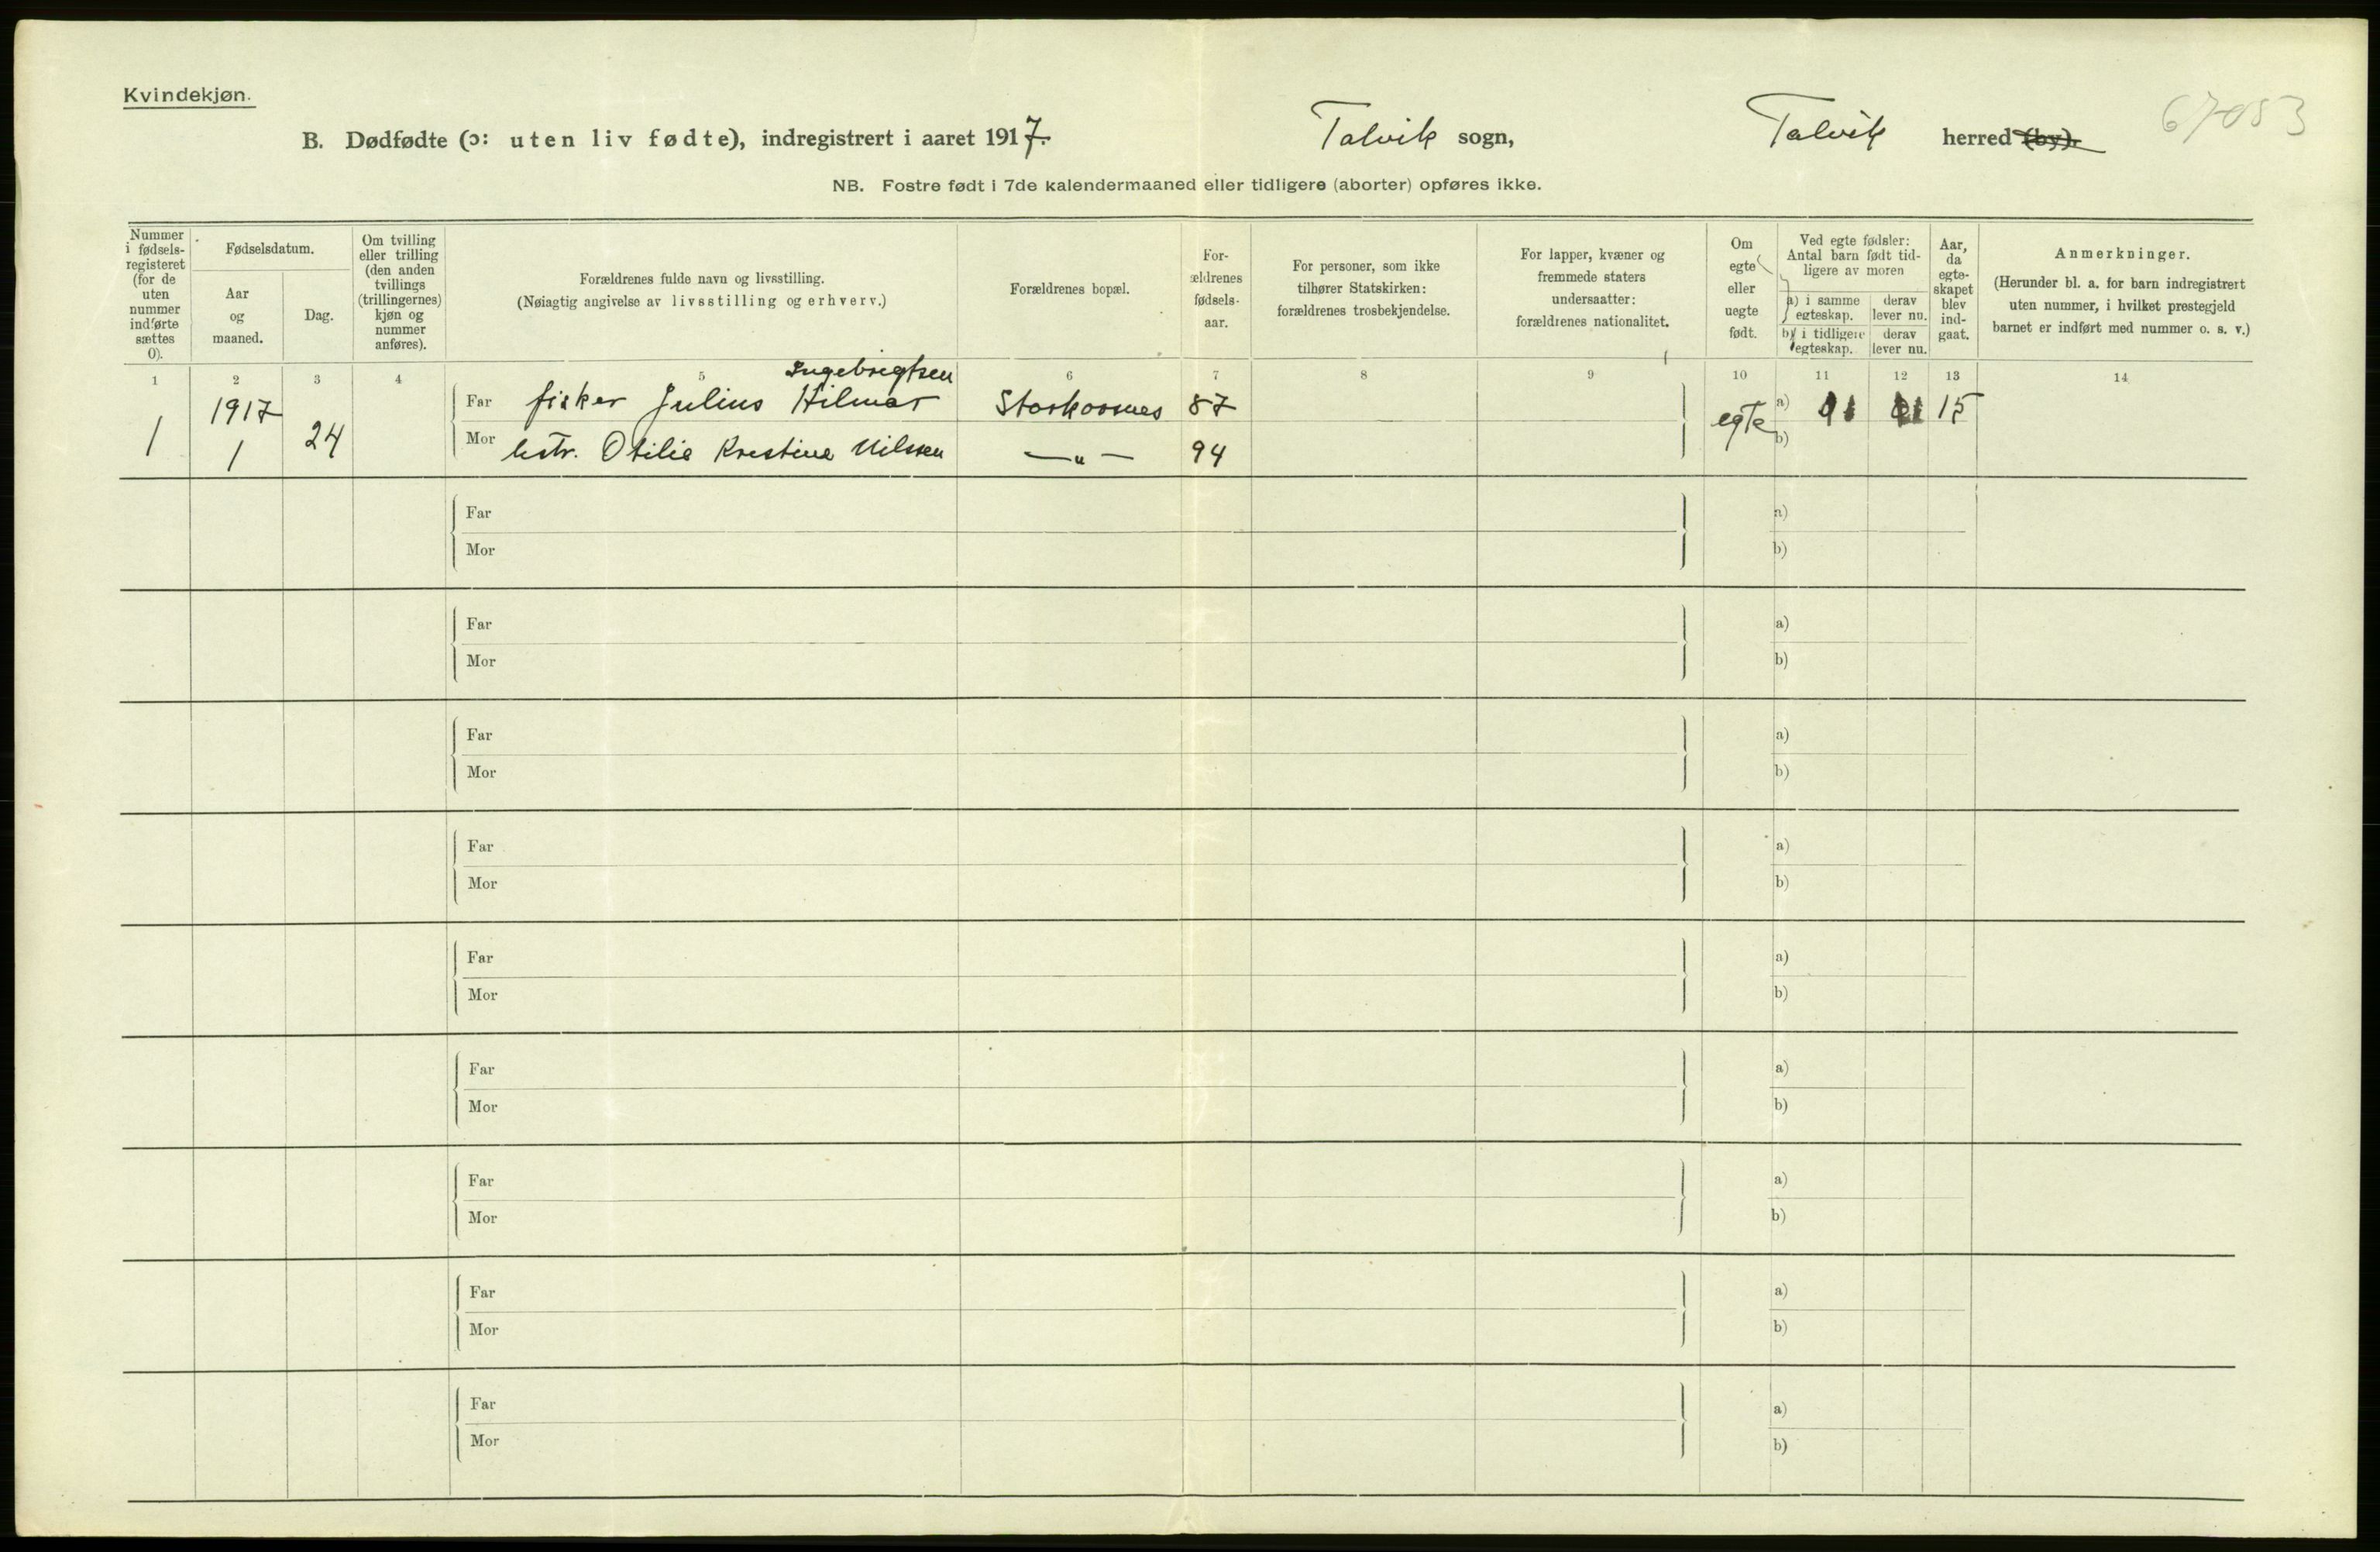 Kvindekjøn.
B. Dødfødte (ɔ: uten liv fødte), indregistrert i aaret 1917. Talvik sogn, Talvik herred (by).
67053
NB. Fostre født i 7de kalendermaaned eller tidligere (aborter) opføres ikke.
Nummer i fødsels-registeret (for de uten nummer indførte sættes 0).
Fødselsdatum.
Aar og maaned.
Dag.
Om tvilling eller trilling (den anden tvillings (trillingernes) kjøn og nummer anføres).
Forældrenes fulde navn og livsstilling.
(Nøiagtig angivelse av livsstilling og erhverv.)
Forældrenes bopæl.
For-ældrenes fødsels-aar.
For personer, som ikke tilhører Statskirken: forældrenes trosbekjendelse.
For lapper, kvæner og fremmede staters undersaatter: forældrenes nationalitet.
Om egte eller uegte født.
Ved egte fødsler: Antal barn født tid-ligere av moren
a) i samme egteskap. derav lever nu.
b) i tidligere egteskap. derav lever nu.
Aar, da egte-skapet blev ind-gaat.
Anmerkninger.
(Herunder bl. a. for barn indregistrert uten nummer, i hvilket prestegjeld barnet er indført med nummer o. s. v.)
1 2 3 4 5 6 7 8 9 10 11 12 13 14
Ingebrigtsen
1 1917 1 24 Far fisker Julius Hilmar Storkorsnes 87 egte a) 1 1 15
Mor hstr. Otilie Kristine Nilsen —„— 94 b)
Far a)
Mor b)
Far a)
Mor b)
Far a)
Mor b)
Far a)
Mor b)
Far a)
Mor b)
Far a)
Mor b)
Far a)
Mor b)
Far a)
Mor b)
Far a)
Mor b)